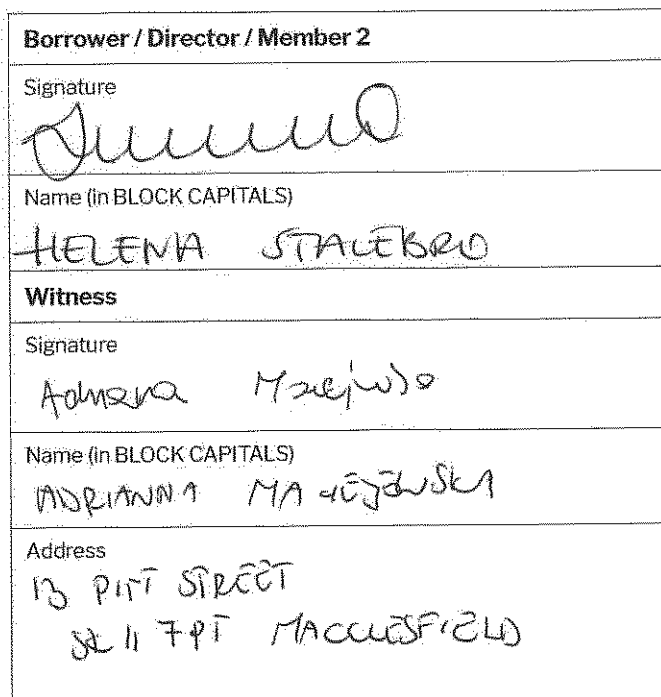 Borrower / Director / Member 2
Signature
Name (in BLOCK CAPITALS)
HELENA STALEBRO
Witness
Signature
Name (in BLOCK CAPITALS)
ADRIANNA MACIEJEWSKA
Address
13 PITT STREET
SK11 7PT MACCLESFIELD